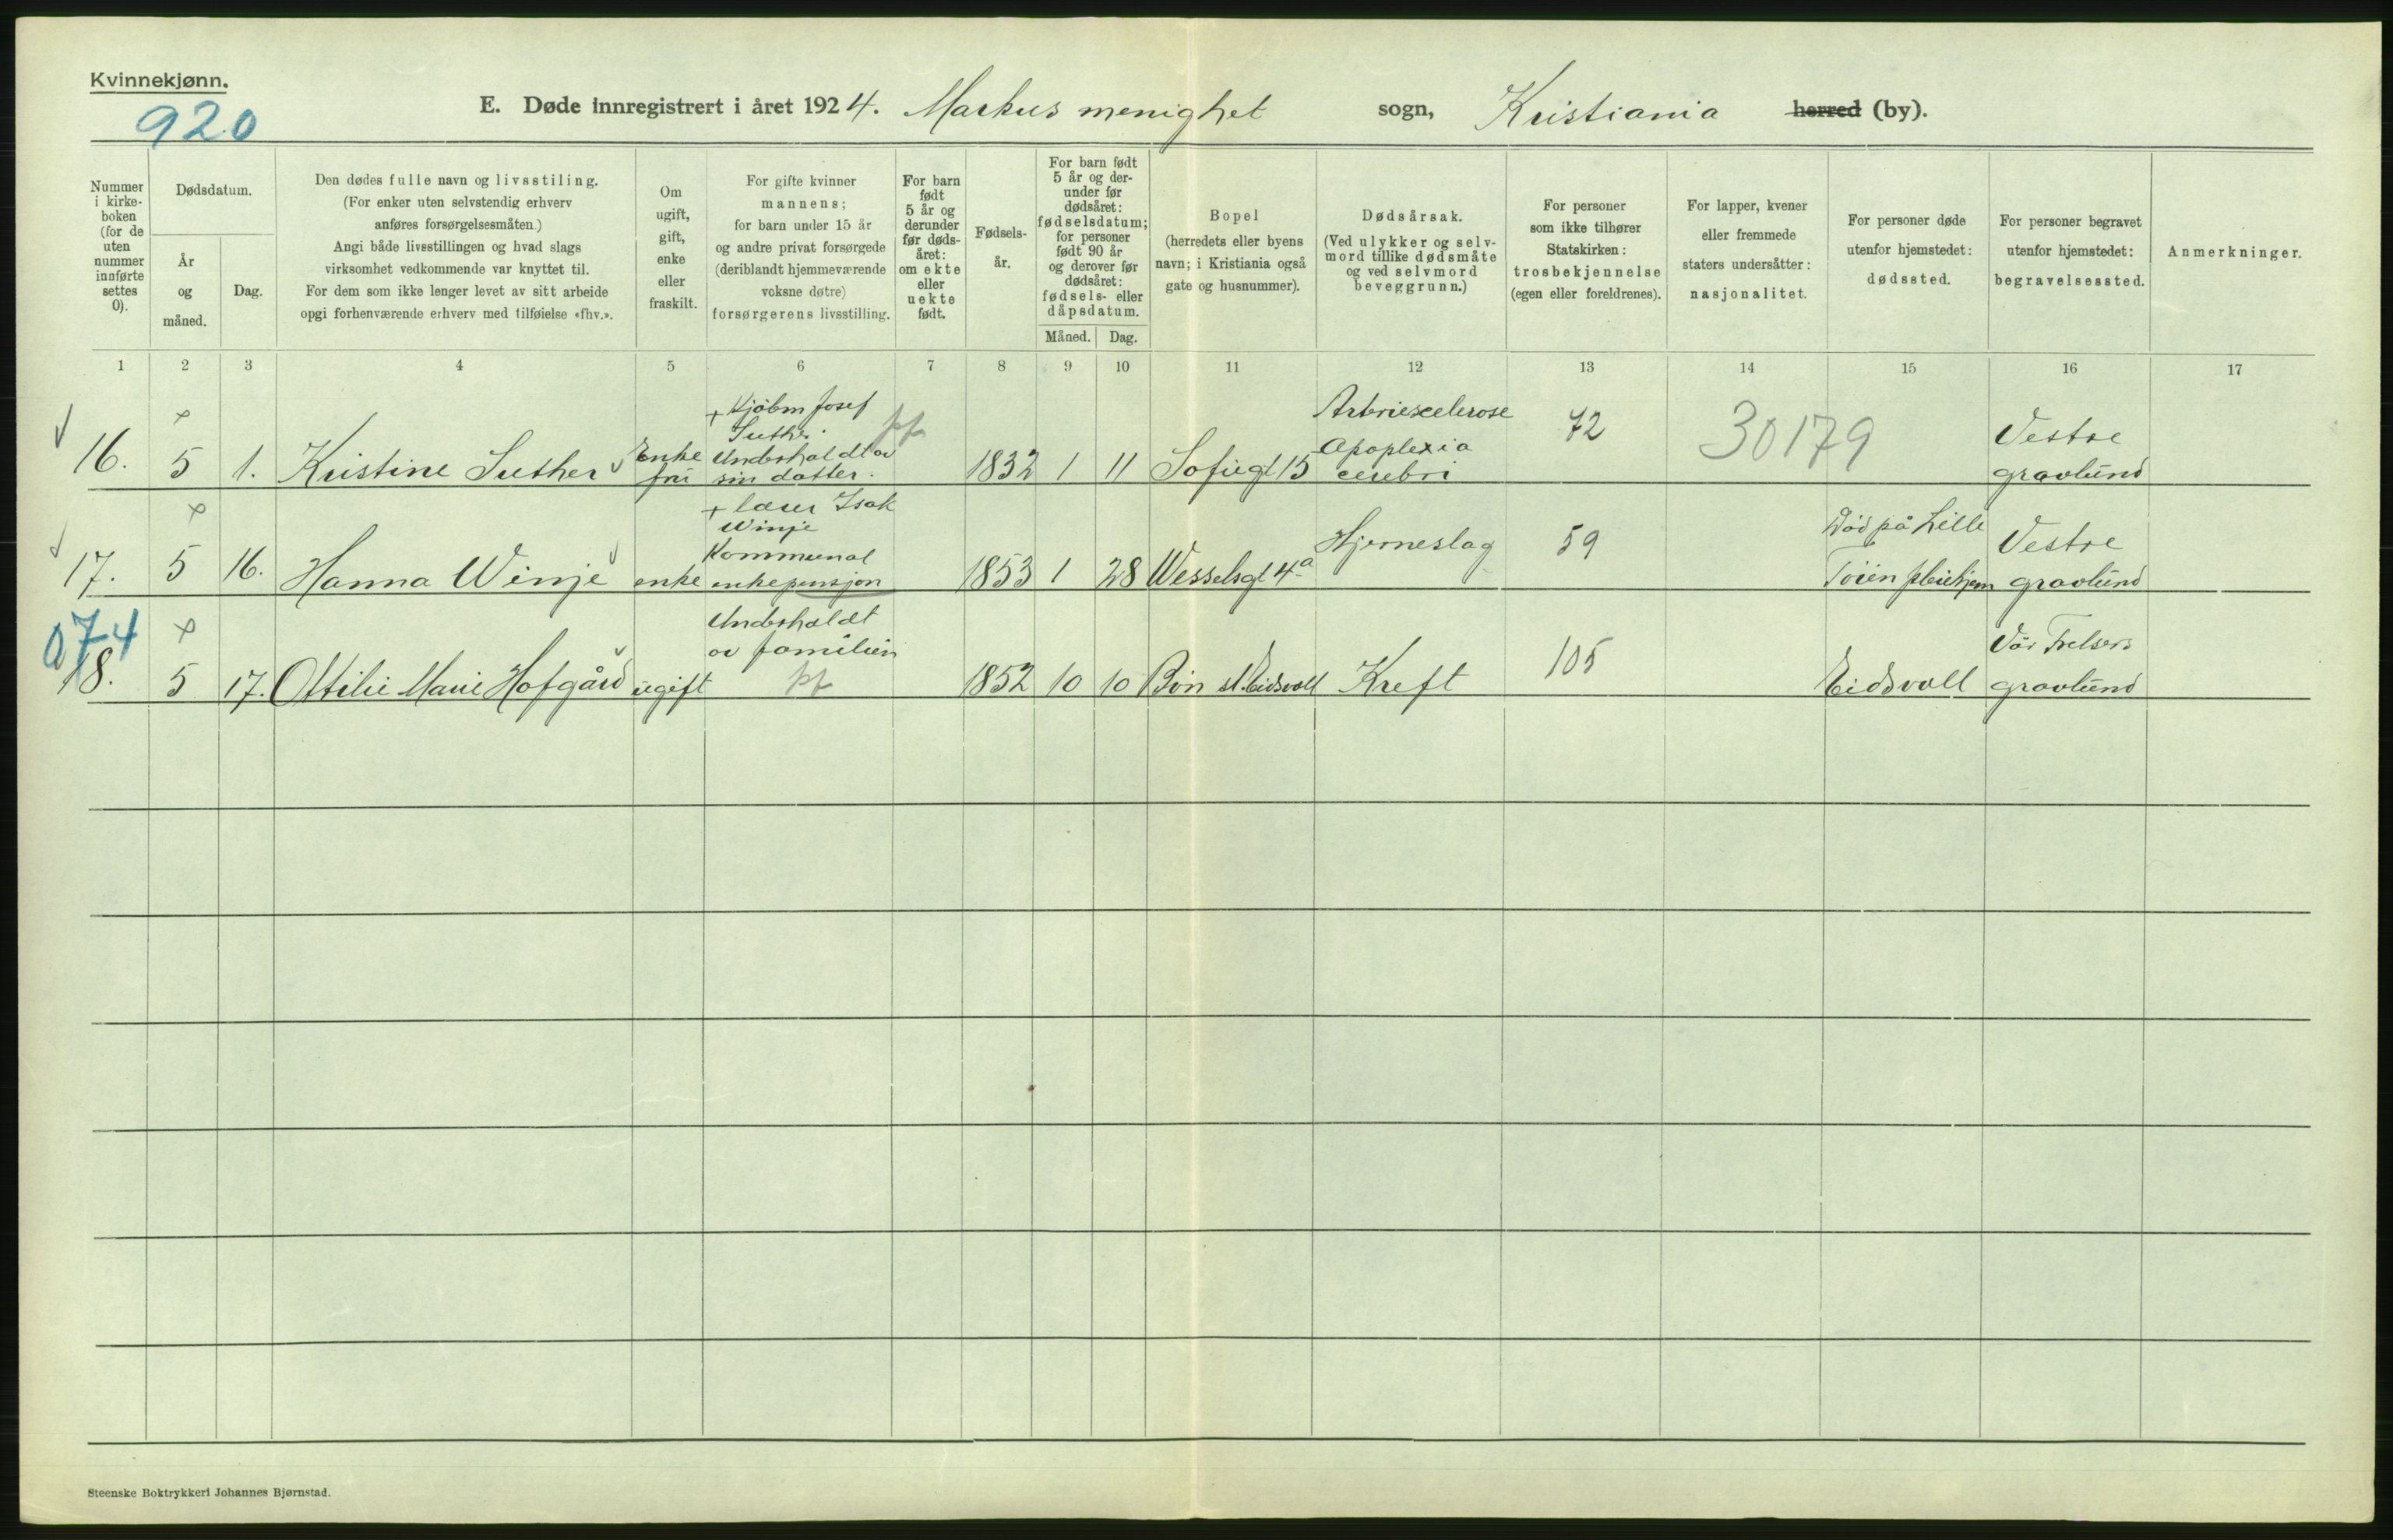 Kvinnekjønn.
920
E. Døde innregistrert i året 1924. Markus menighet sogn, Kristiania herred (by).
Nummer i kirke-boken (for de uten nummer innførte settes 0).
Dødsdatum.
År og måned.
Dag.
Den dødes fulle navn og livsstiling.
(For enker uten selvstendig erhverv
anføres forsørgelsesmåten.)
Angi både livsstillingen og hvad slags
virksomhet vedkommende var knyttet til.
For dem som ikke lenger levet av sitt arbeide
opgi forhenværende erhverv med tilføielse «fhv.».
Om ugift, gift, enke eller fraskilt.
For gifte kvinner
mannens;
for barn under 15 år
og andre privat forsørgede
(deriblandt hjemmeværende
voksne døtre)
forsørgerens livsstilling.
For barn født 5 år og derunder før døds-året: om ekte eller uekte født.
Fødsels-år.
For barn født
5 år og der-
under før
dødsåret:
fødselsdatum;
for personer
født 90 år
og derover før
dødsåret:
fødsels- eller
dåpsdatum.
Måned. Dag.
Bopel
(herredets eller byens
navn; i Kristiania også
gate og husnummer).
Dødsårsak.
(Ved ulykker og selv-
mord tillike dødsmåte
og ved selvmord
beveggrunn.)
For personer
som ikke tilhører
Statskirken:
trosbekjennelse
(egen eller foreldrenes).
For lapper, kvener
eller fremmede
staters undersåtter:
nasjonalitet.
For personer døde
utenfor hjemstedet:
dødssted.
For personer begravet
utenfor hjemstedet:
begravelsessted.
Anmerkninger.
1 2 3 4 5 6 7 8 9 10 11 12 13 14 15 16 17
+ Kjøbm Josef
Suther
Underholdt av
sin datter.
16. 5 1. Kristine Suther Enke fru pf 1832 1 11 Sofiegt 15
Arteriesclerose
Apoplexia
cerebri
72 30179
Vestre
gravlund
+ lærer Isak
Winje
Kommunal
enkepensjon
17. 5 16. Hanna Winje enke 1853 1 28 Wesselsgt 4a Hjerneslag 59
Død på Lille
Töien pleiehjem
Vestre
gravlund
074
Underholdt
av familien
18. 5 17. Ottilie Marie Hofgård ugift pf 1852 10 10 Bøn st. Eidsvoll Kreft 105 Eidsvoll
Vår Frelsers
gravlund
Steenske Boktrykkeri Johannes Bjørnstad.